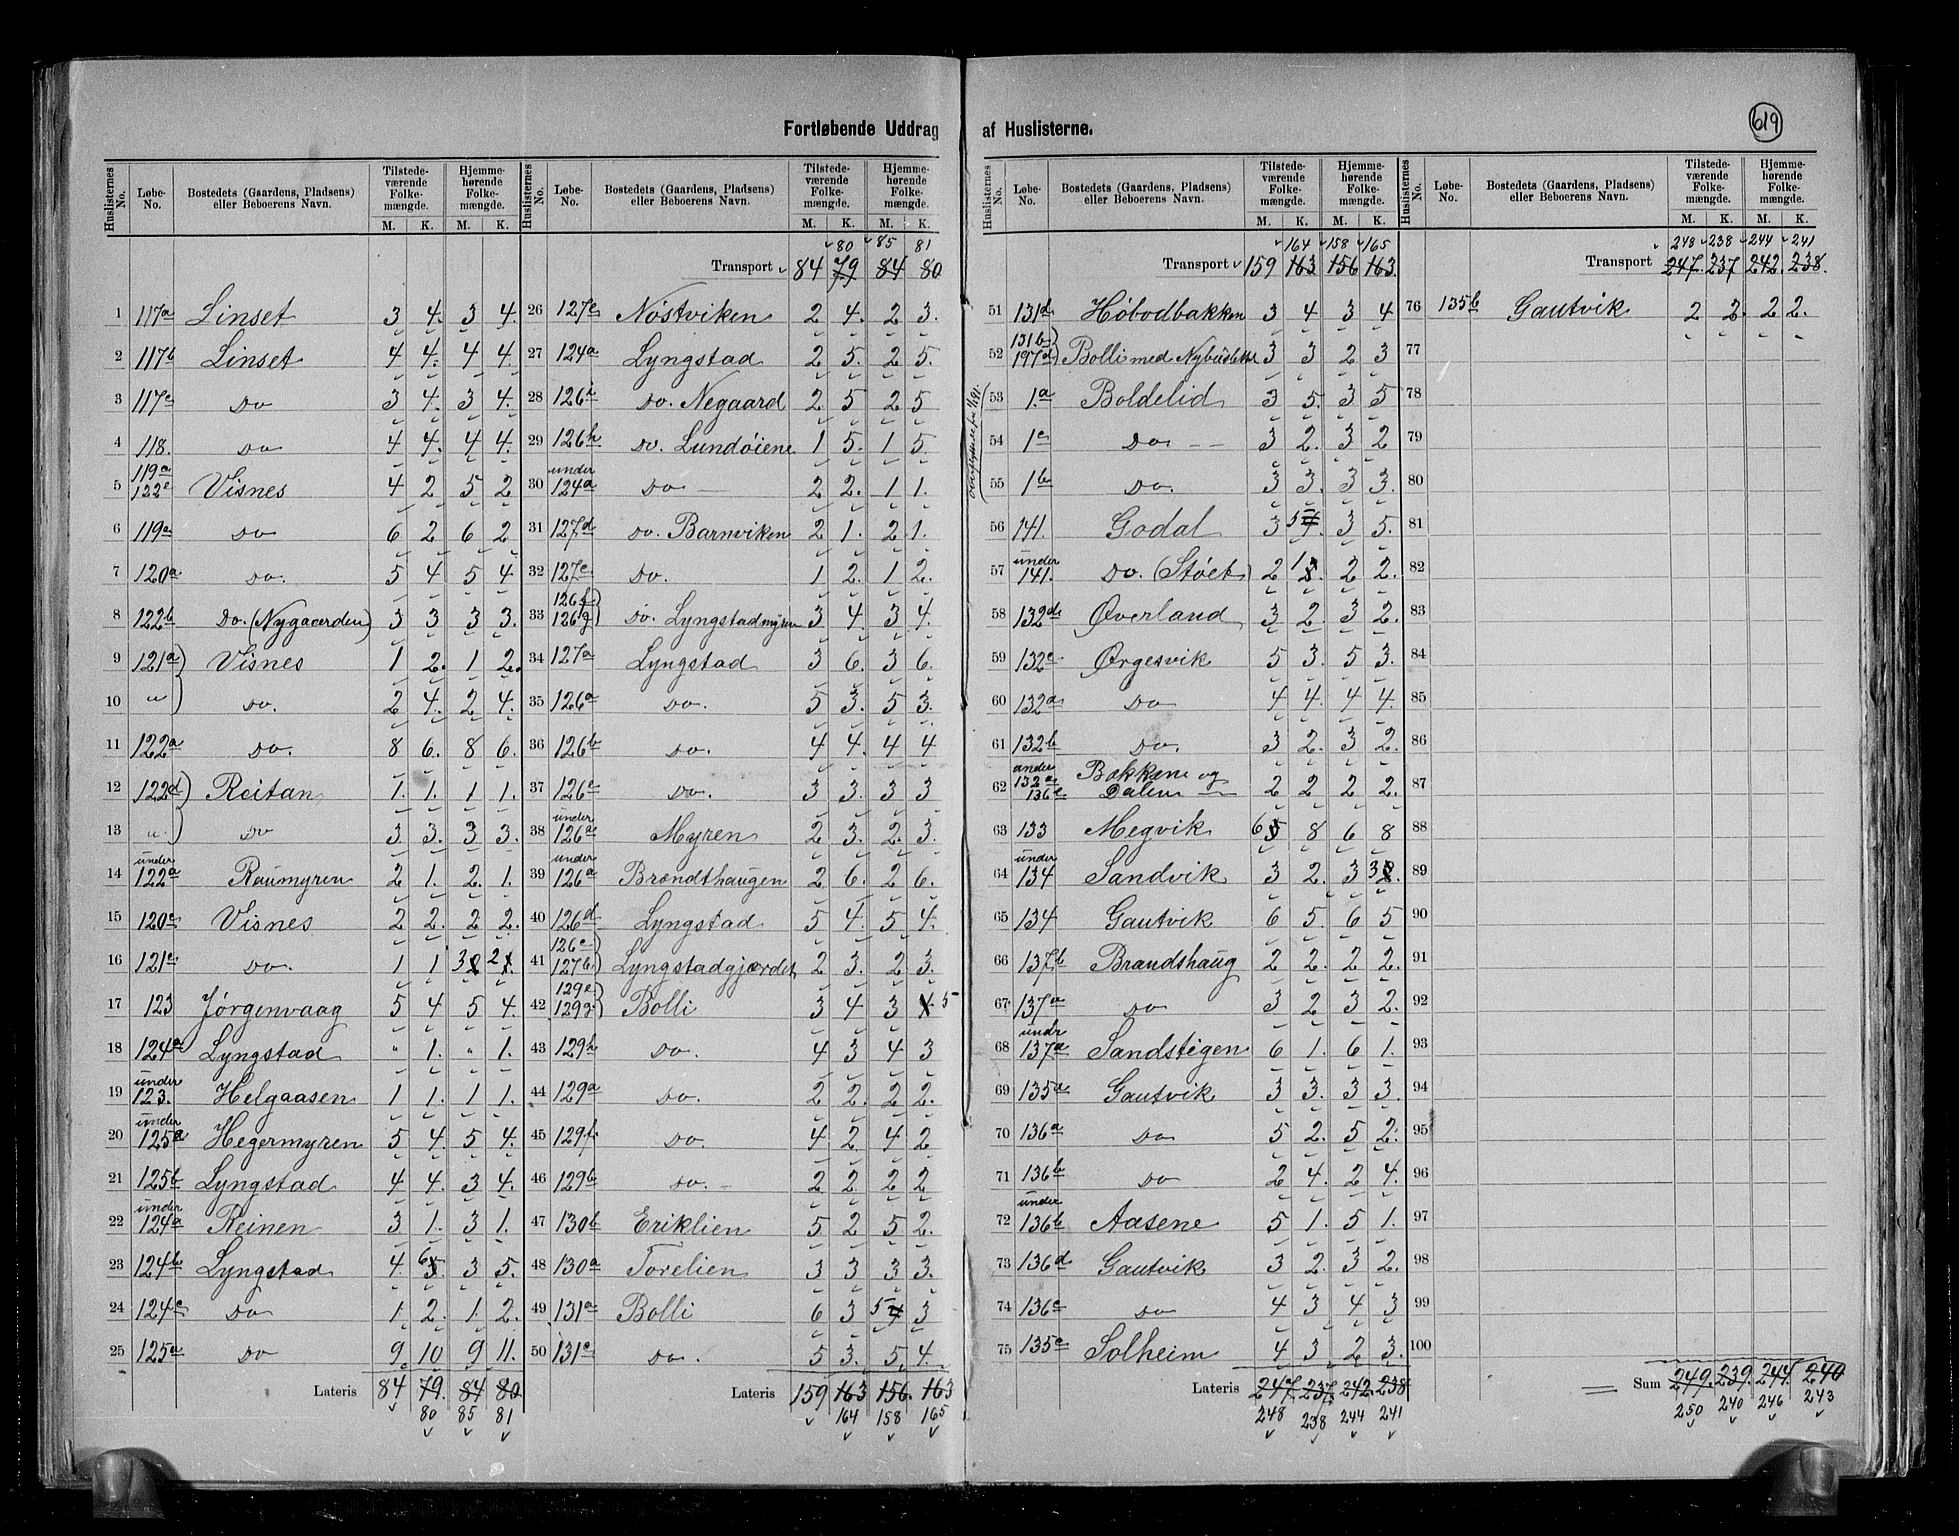 Fortløbende Uddrag af Huslisterne.
619
Huslisternes No. | Løbe-No. | Bostedets (Gaardens, Pladsens) eller Beboerens Navn. | Tilstedeværende Folkemængde. M. K. | Hjemmehørende Folkemængde. M. K.
1 117a Linset 3 4. 3 4.
2 117b Linset 4 4. 4 4.
3 117c Do 3 4. 3 4.
4 118. Do 4 4. 4 4.
5 119a 122e Visnes 4 2 5 2
6 119a Do 6 2 6 2
7 120a Do. 5 4 5 4
8 122b Do. (Nygaarden) 3 3 3 3.
9 121a Visnes 1 2. 1 2.
10 " Do. 2 4. 2 4.
11 122a Do. 8 6. 8 6.
12 122d Reitan 1. 1. 1 1.
13 " Do 3 3. 3 3.
14 under 122a Raumyren 2 1. 2. 1.
15 120c Visnes 2 2. 2 2.
16 121c Do. 1 1 3 2
17 123 Jørgenvaag 5 4 5 4.
18 124a Lyngstad " 1. " 1.
19 under 123. Helgaasen 1 1. 1 1.
20 under 125a Hegermyren 5 4 5 4.
21 125b Lyngstad 4 4. 3 4.
22 under 124a Reinen 3 1. 3 1.
23 124b Lyngstad 4. 6 5 3 5.
24 124c Do 1. 2. 1. 2.
25 125a Do 9 10 9 11.
Lateris 84 79. 84 80.
80 85 81
80 85 81
Transport 84 79 84 80
26 127c Nøstviken 2 4. 2 3.
27 124a Lyngstad 2 5. 2 5.
28 126i Do. Negaard 2 5 2 5
29 126h Do. Lundøiene 1 5. 1 5
30 under 124a Do 2 2. 1 1.
31 127d Do. Barnviken 2 1. 2 1.
32 127e Do. 1 2. 1 2.
33 126f 126g Do. Lyngstadmyren 3 4. 3 4.
34 127a Lyngstad 3 6. 3 6.
35 126a Do. 5 3. 5 3.
36 126b Do. 4 4. 4 4
37 126c Do. 3 3. 3 3
38 under 126a Myren 2 3. 2. 3.
39 under 126a Brændthaugen 2 6. 2 6.
40 126d Lyngstad 5 4. 5 4.
41 126e 127b Lyngstadgjærdet 2 3. 2 3.
42 129e 129g Bolli 3 4 3 4 5
43 129h Do. 4 3 4 3
44 129a Do. 2 2. 2 2.
45 129f. Do. 4 2 4 2
46 129b Do. 2 2 2 2
47 130b Eriklien 5 2 5 2.
48 130a Torelien 3 3 3 3.
49 131a Bolli 6 3 5 4 3
50 131c Do. 5 3. 5. 4.
Lateris 159 163 156. 163
164 158 165
164 158 165
Transport 159 163 156 163.
51 131d Høbodbakken 3 4 3 4
52 131b 197d Bolli med Nybuslettet 3 3 2 3
53 1.a Boldelid 3 5. 3 5
54 1c Do 3 2. 3 2
55 1b Do. 3 3. 3 3.
56 141. Godal 3 5 4 3 5.
57 under 141. Do. (Støet) 2 1 2 2.
58 132d Øverland 3 2. 3 2.
59 132c Ørgesvik 5 3. 5 3.
60 132a Do 4 4. 4 4.
61 132b Do. 3 2. 3 2.
62 under 132a 136c Bakkene og Dalen 2 2 2 2.
63 133 Megvik 6 5 8 6 8
64 under 134 Sandvik 3 2. 3 3 2.
65 134 Gautvik 6 5. 6 5
66 137b Brandshaug 2 2. 2 2.
67 137a Do 3 2 3 2.
68 under 137a Sandstigen 6 1. 6 1.
69 135a Gautvik 3 3. 3 3.
70 136a Do 5 2. 5 2.
71 136b Do 2 4. 2 4.
72 under 136b Aasene 5 1. 5 1.
73 136d Gautvik 3 2. 3 2.
74 136c Do 4 3 4 3
75 135c Solheim 4 3 2 3.
Lateris 247. 237. 242. 238.
248 238 244 241
248 238 244 241
Transport 247. 237 242. 238.
76 135b Gautvik 2 2. 2 2.
77
78
79
80
81
82
83
84
85
86
87
88
89
90
91
92
93
94
95
96
97
98
99
100
Sum 249. 239. 244. 240
250 240 246 243